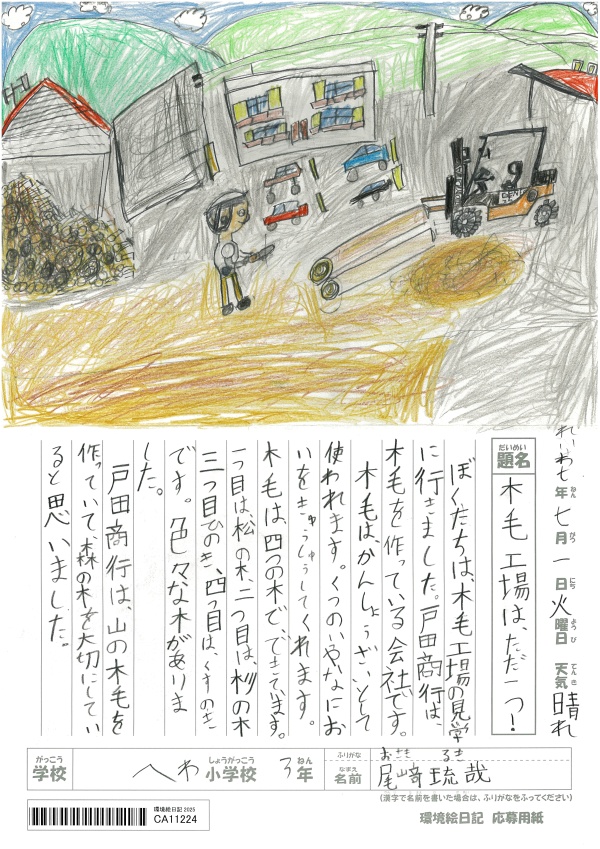 れいわ七年七月一日火曜日 天気 晴れ
ねん がつ にち ようび てんき
だいめい
題名 木毛工場は、ただ一つ!
ぼくたちは、木毛工場の見学
に行きました。戸田商行は、
木毛を作っている会社です。
木毛はかんしょうざいとて
使われます。くつのいやなにお
いをきゅうしゅうしてくれます。
木毛は、四つの木で、できています。
一つ目は松の木、二つ目は、杉の木
三つ目ひのき、四つ目は、くすのき
です。色々な木がありま
した。
戸田商行は、山の木毛を
作っていて、森の木を大切にしてい
ると思いました。
がっこう しょうがっこう ねん ふりがな おさき るき
学校 へわ 小学校 3年 なまえ 名前 尾﨑琉哉
(漢字で名前を書いた場合は、ふりがなをふってください)
環境絵日記 2025
CA11224
環境絵日記 応募用紙